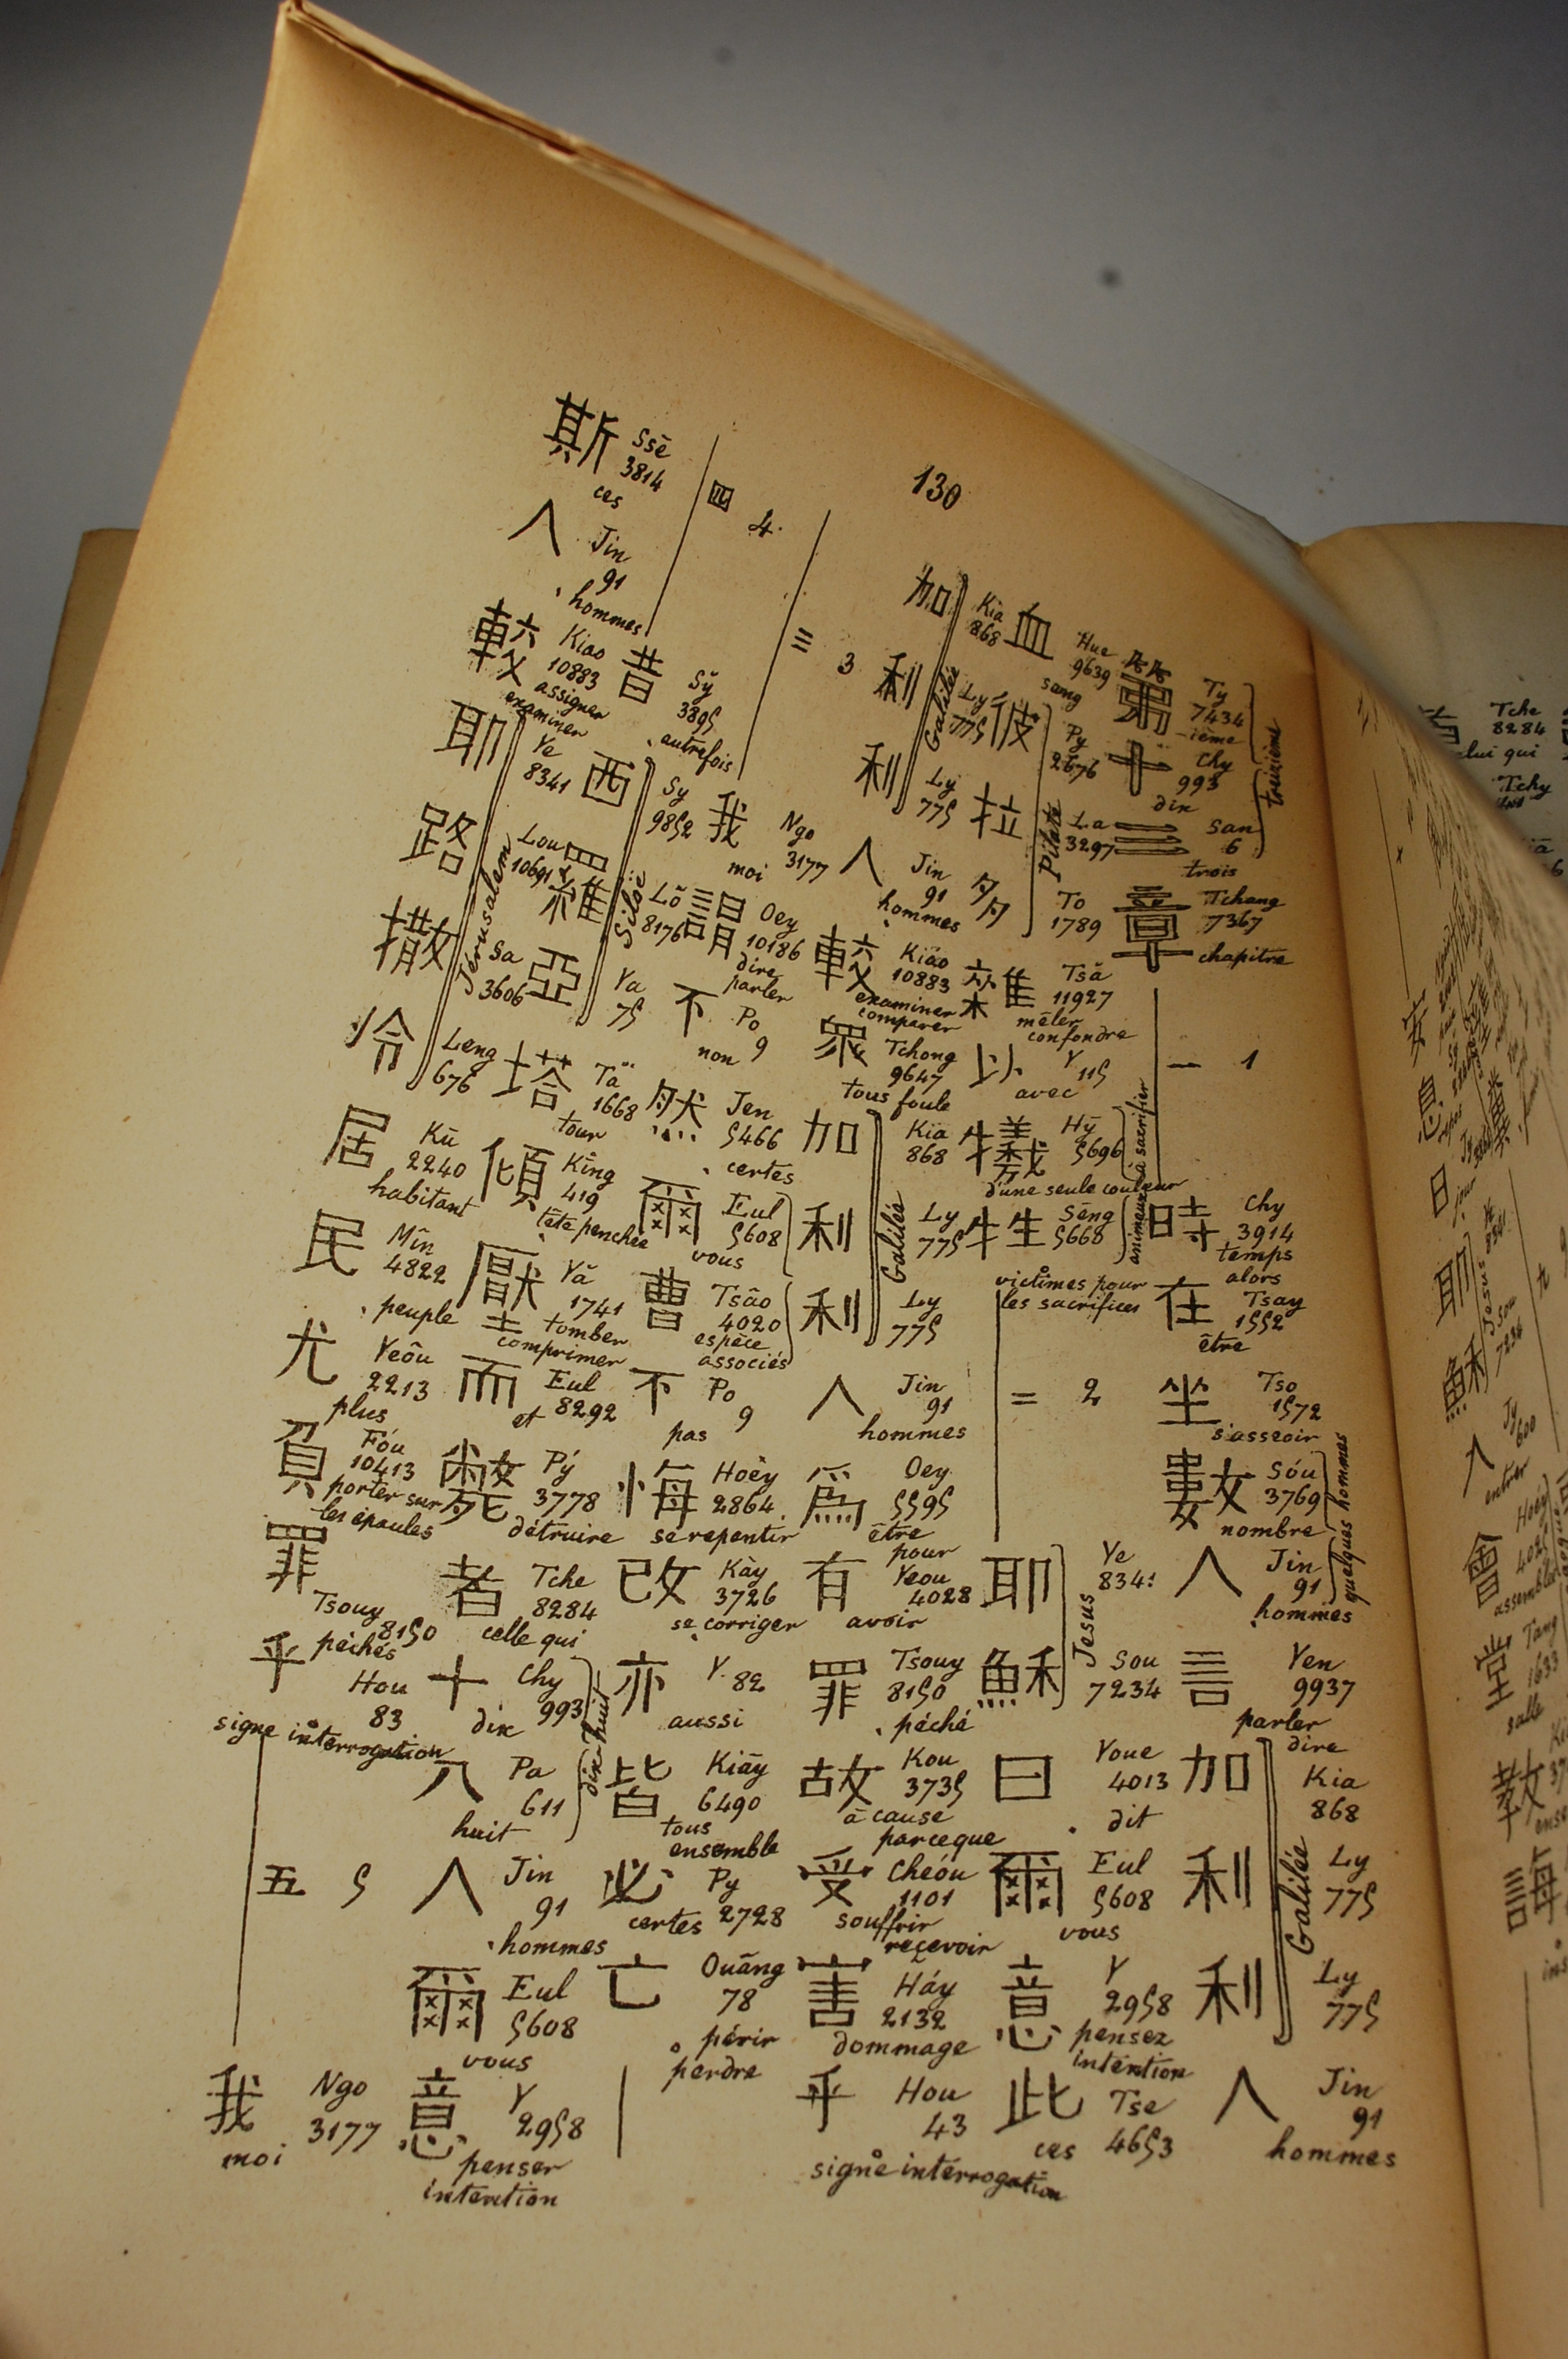 130
第 Ty 7434 -ième
十 Chy 993 dix
三 San 6 trois
treizième
章 Tchang 7367 chapitre
一 1
時 Chy 3914 temps alors
在 Tsay 1552 être
坐 Tso 1572 s'asseoir
數 Sóu 3769 nombre
人 Jin 91 hommes
quelques hommes
言 Yen 9937 parler dire
加 Kia 868
利 Ly 775
利 Ly 775
Galilée
人 Jin 91 hommes
血 Hue 9639 sang
彼 Py 2676
拉 La 3297
多 To 1789
Pilate
雜 Tsă 11927 mêler confondre
以 Y 115 avec
犧 Hȳ 5696 d'une seule couleur
牲 Sēng 5668
animaux à sacrifier
victimes pour les sacrifices
二 2
耶 Ye 8341
穌 Sou 7234
Jesus
曰 Youe 4013 dit
爾 Eul 5608 vous
意 Y 2958 pensez intention
此 Tse 4653 ces
加 Kia 868
利 Ly 775
利 Ly 775
Galilé
人 Jin 91 hommes
較 Kiáo 10883 examiner comparer
眾 Tchong 9647 tous foule
加 Kia 868
利 Ly 775
利 Ly 775
Galilée
人 Jin 91 hommes
為 Oey 5595 être pour
有 Yeou 4028 avoir
罪 Tsouy 8150 péché
故 Kou 3735 à cause parceque
受 Chéóu 1101 souffrir recevoir
害 Háy 2132 dommage
乎 Hou 43 signe interrogation
三 3
我 Ngo 3177 moi
謂 Oey 10186 dire parler
不 Po 9 non
然 Jen 5466 certes
爾 Eul 5608 vous
曹 Tsâo 4020 espèce associés
不 Po 9 pas
悔 Hoèy 2864 se repentir
改 Kày 3726 se corriger
亦 Y 82 aussi
皆 Kiāy 6490 tous ensemble
必 Py 2728 certes
亡 Ouâng 78 périr perdre
四 4.
昔 Sў 3895 autrefois
西 Sy 9852
羅 Lŏ 8176
亞 Ya 75
Siloë
塔 Tă 1668 tour
傾 Kīng 419 tête penchée
壓 Yă 1741 tomber comprimer
而 Eul 8292 et
斃 Pý 3778 détruire
者 Tche 8284 celle qui
十 Chy 993 dix
八 Pa 611 huit
dix huit
人 Jin 91 hommes
爾 Eul 5608 vous
意 Y 2958 penser intention
斯 Ssē 3814 ces
人 Jin 91 hommes
較 Kiao 10883 assigner examiner
耶 Ye 8341
路 Lou 10691
撒 Sa 3606
冷 Leng 676
Jérusalem
居 Kū 2240 habitant
民 Mîn 4822 peuple
尤 Yeôu 2213 plus
負 Fóu 10413 porter sur les épaules
罪 Tsouy 8150 péchés
乎 Hou 83 signe interrogation
五 5
我 Ngo 3177 moi